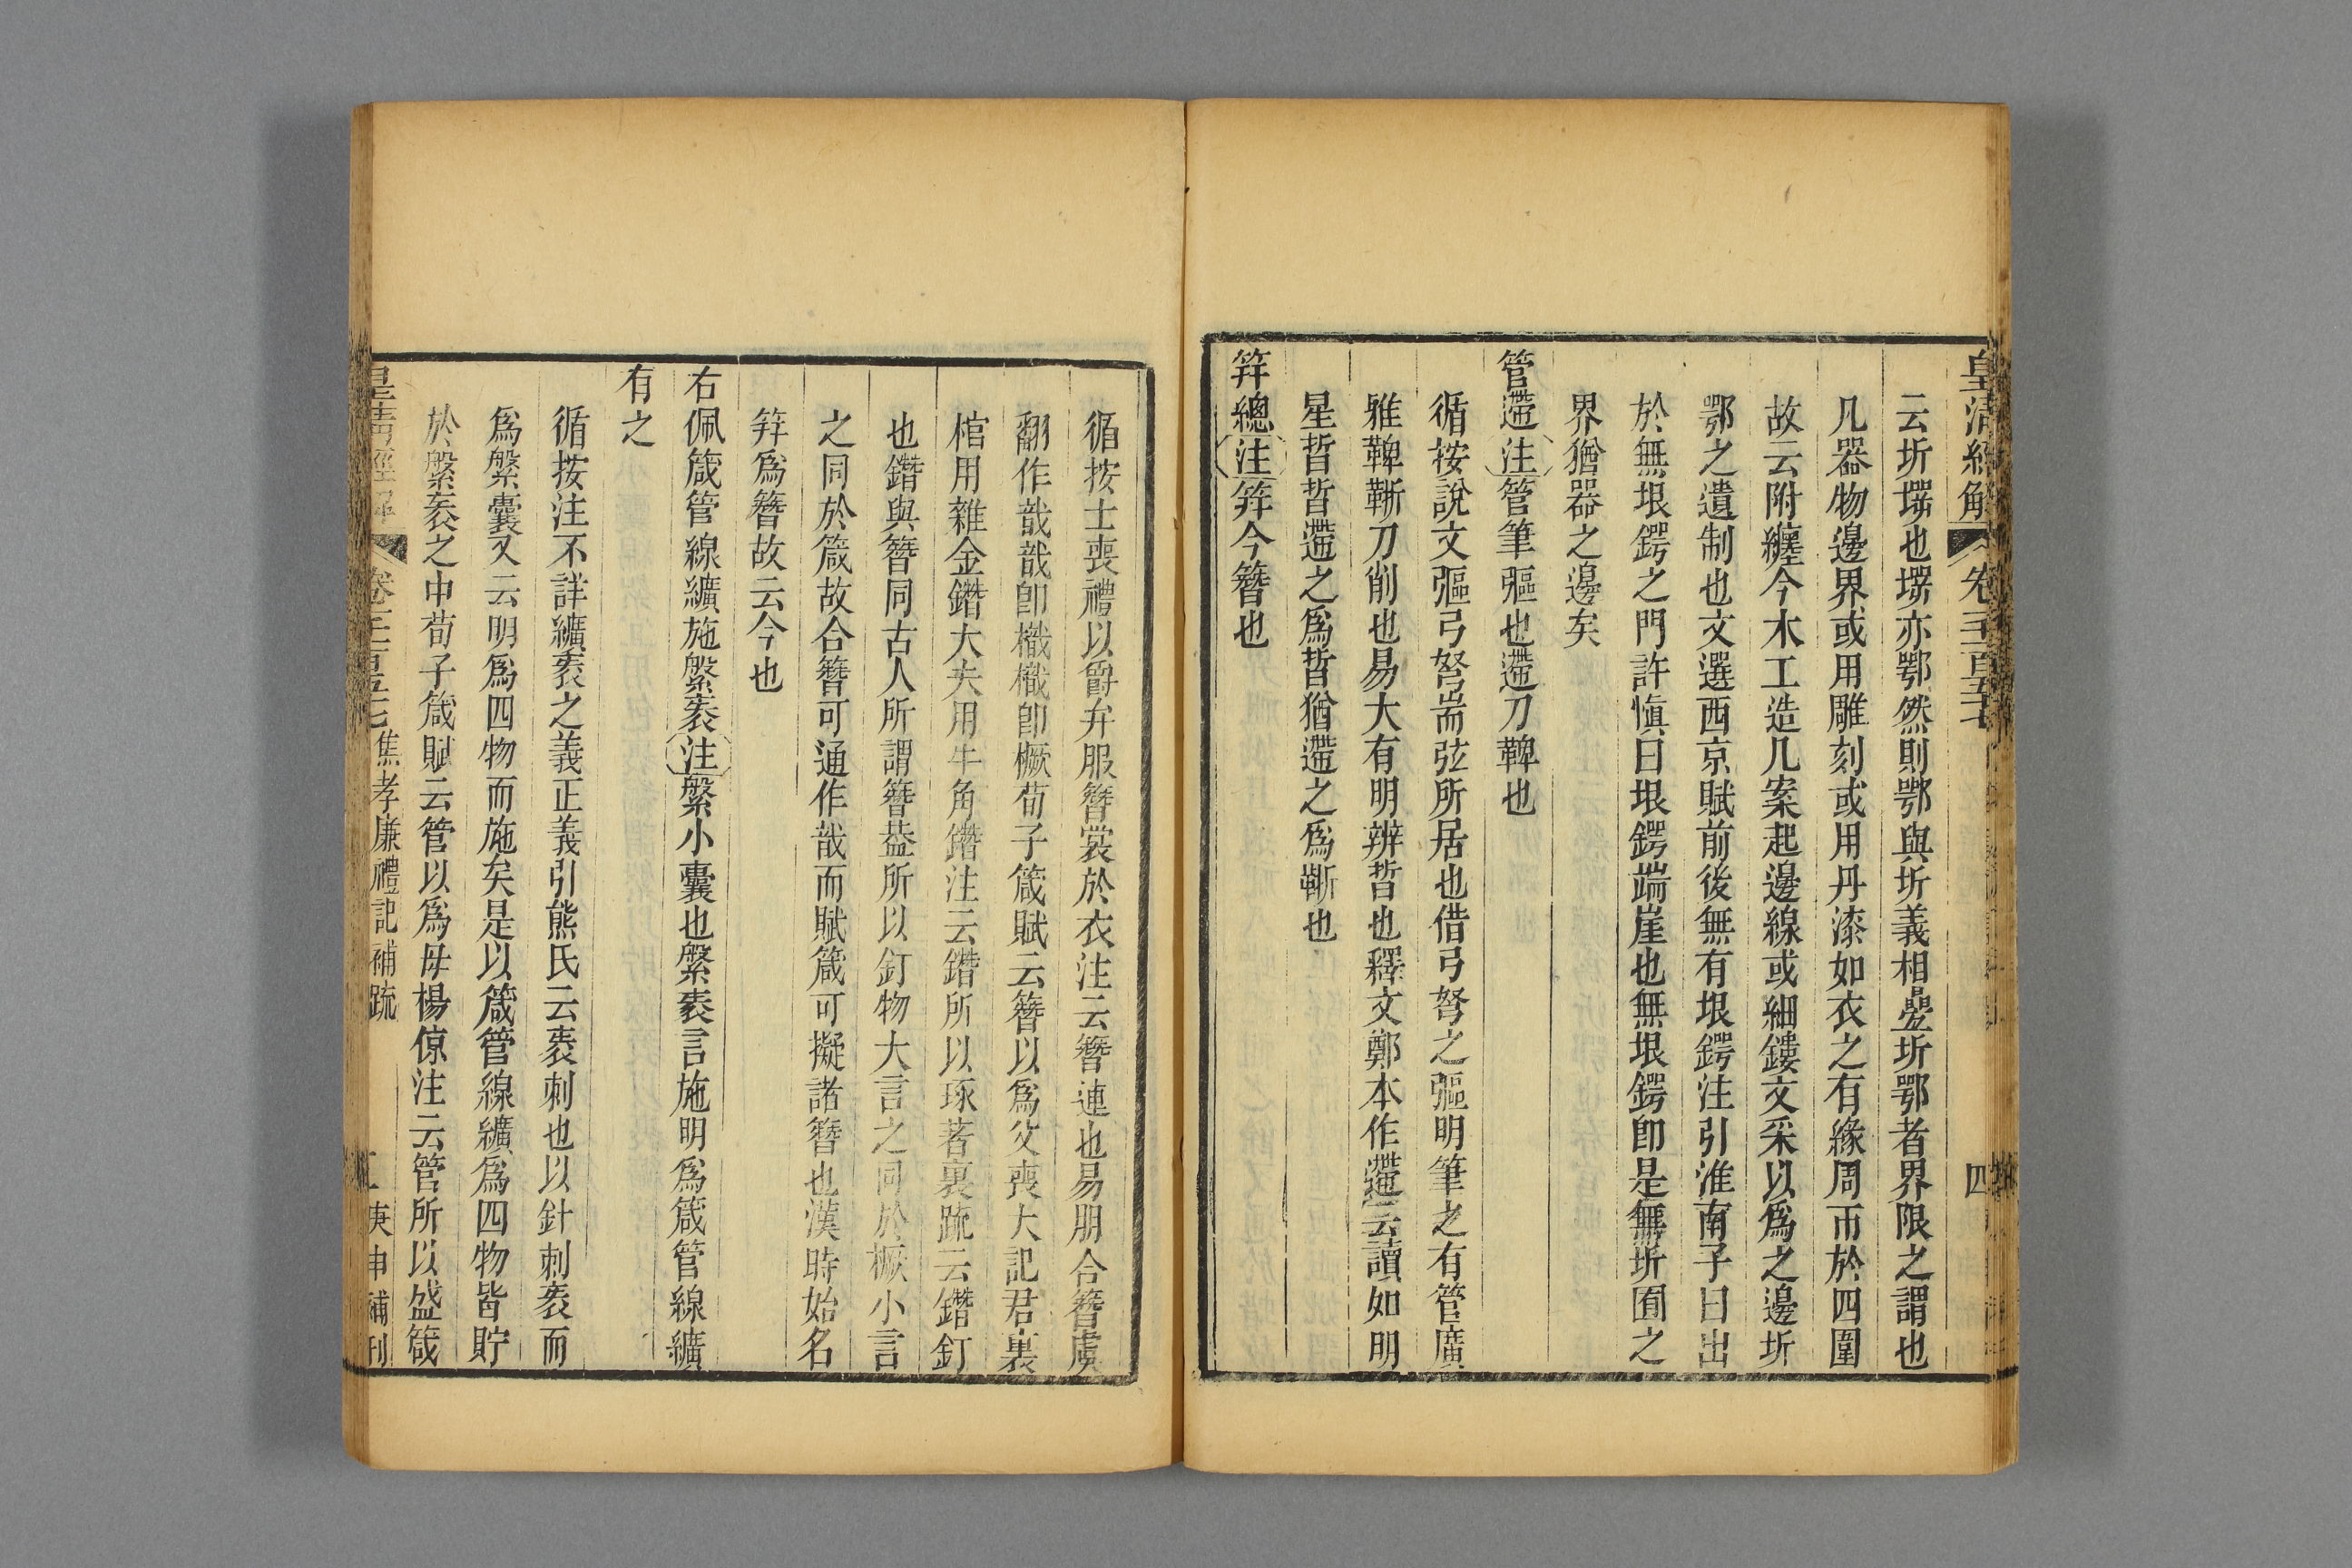 皇清經解 卷千一百五十七 四
云圻堮也堮亦鄂然則鄂與圻義相疊圻鄂者界限之謂也
凡器物邊界或用雕刻或用丹漆如衣之有緣周帀於四圍
故云附纏今木工造几案起邊線或細鏤文采以爲之邊圻
鄂之遺制也文選西京賦前後無有垠鍔注引淮南子曰出
於無垠鍔之門許愼曰垠鍔端崖也無垠鍔卽是無圻囿之
界猶器之邊矣
管遰注管筆彄也遰刀鞞也
循按說文彄弓弩耑弦所居也借弓弩之彄明筆之有管廣
雅鞞鞘刀削也易大有明辨晢也釋文鄭本作遰云讀如明
星晢晢遰之爲晢猶遰之爲鞘也
笄總注笄今簪也
循按士喪禮以爵弁服簪裳於衣注云簪連也易朋合簪虞
翻作戠戠卽樴樴卽橛荀子箴賦云簪以爲父喪大記君裏
棺用雜金鐕大夫用牛角鐕注云鐕所以琢著裏疏云鐕釘
也鐕與簪同古人所謂簪葢所以釘物大言之同於橛小言
之同於箴故合簪可通作戠而賦箴可擬諸簪也漢時始名
笄爲簪故云今也
右佩箴管線纊施縏袠注縏小囊也縏袠言施明爲箴管線纊
有之
循按注不詳纊袠之義正義引熊氏云袠刺也以針刺袠而
爲縏囊又云明爲四物而施矣是以箴管線纊爲四物皆貯
於縏袠之中荀子箴賦云管以爲母楊倞注云管所以盛箴
皇清經解 卷 焦孝廉禮記補疏 庚申補刊